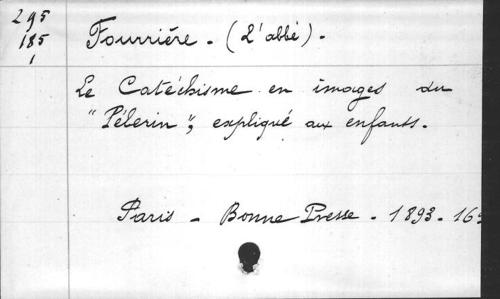 295
185
1
Fourrière. (L'abbé).
Le Catéchisme en images du
"Pélerin", expliqué aux enfants.
Paris - Bonne Presse. 1893.